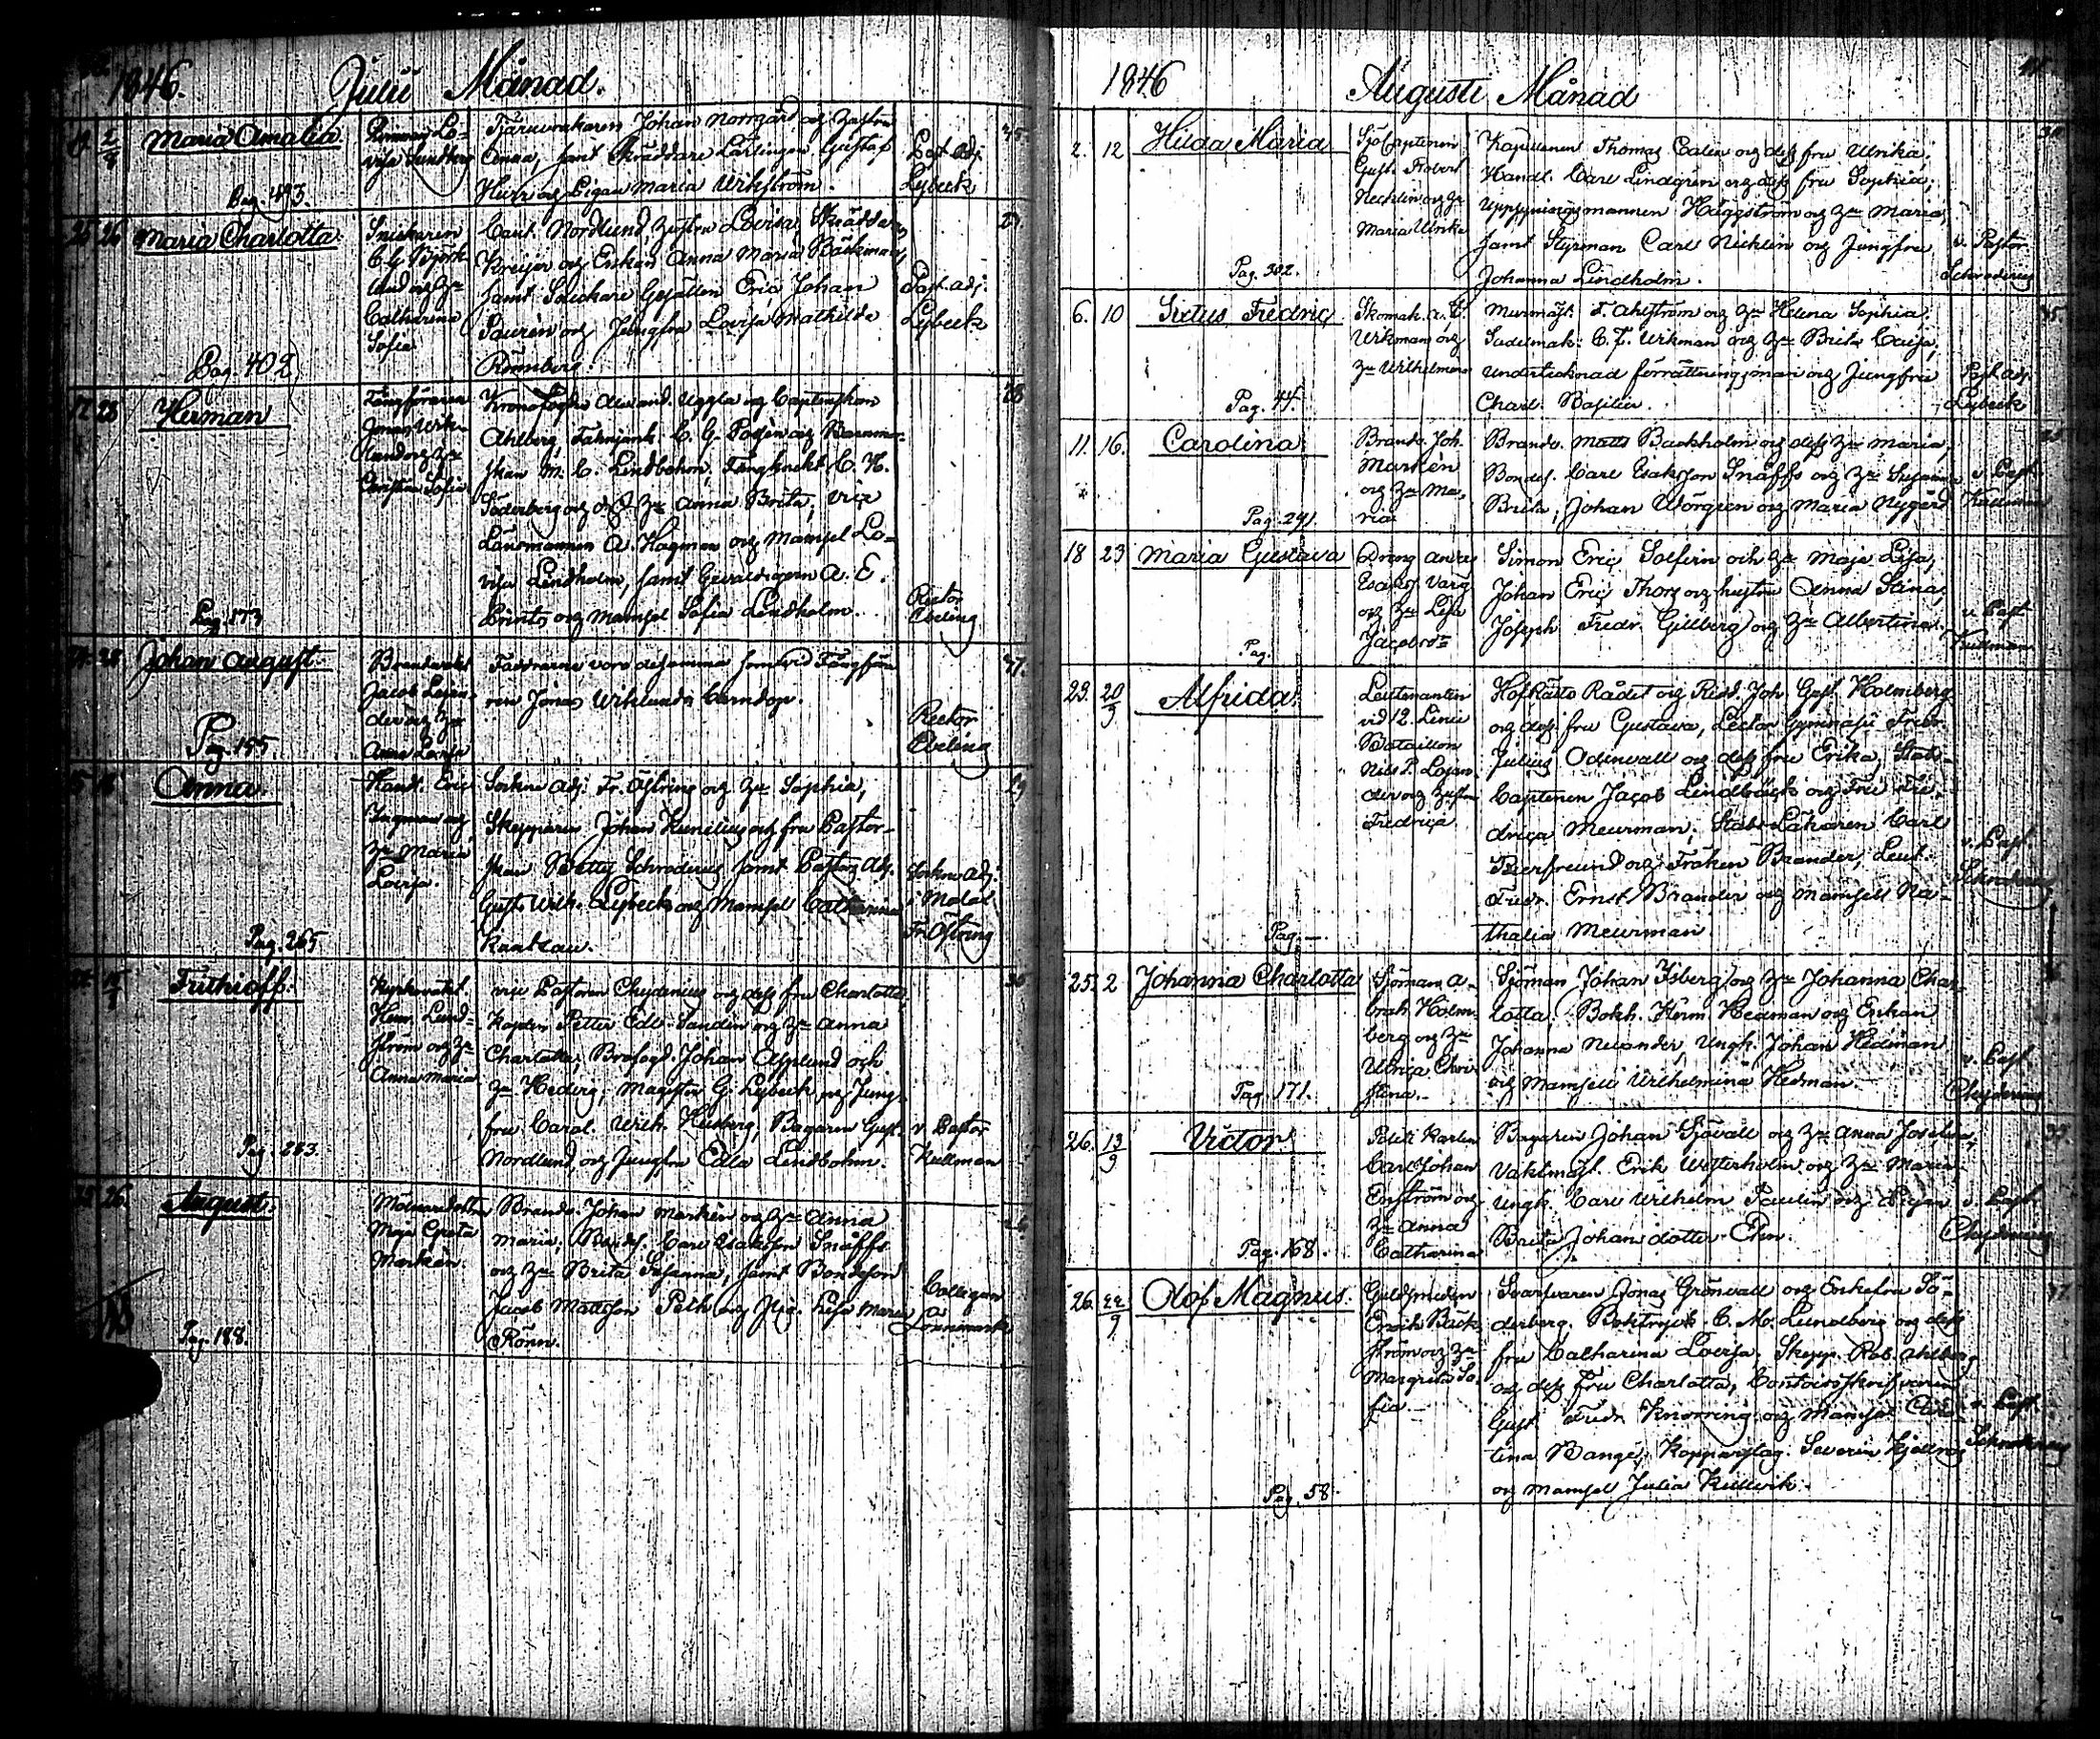 1846. Julii Månad.
Maria Amalia
Pigan Lo-
visa Lundberg
Tjäruvrakaren Johan Norrgård och hustru
Anna, samt Skräddare Lärlingen Gustaf
och Pigan Maria Wikström.
Past. Adj.
Lybeck
Pag. 493.
25 26 Maria Charlotta.
Snickaren
C. G. Björk-
lund och Hu
Catharina
Sofia
Nordlund, hustru Lovisa, Skräddar
och Enkan Anna Maria Bäckman,
samt Snickare Gesällen Eric Johan
och Jungfru Lovisa Mathilda
Rönnberg.
Past. adj.
Lybeck
Pag. 402
28 Herman
Fångföraren
Jonas Wik-
lund och Hu
Christina Sofia
Kronofogde Alexand. Uggla och Captenskan
Ahlberg, C. G.
M. C. Lindbohm, Fångknekt C. H.
Söderberg och dess Hu Anna Brita, vice
Länsmannen A. Hagman och Mamsel Lo-
visa Lindholm, samt Gevaldigern A. E.
Printz och Mamsel Sofia Lindholm.
Rector
Ebeling
Pag. 173
28 Johan August.
Brandvakt
Jacob
der och Hu
Anna Lovisa
Faddrarne voro desamma som vid Fångföra-
ren Jonas Wiklunds barndop.
Rector
Ebeling
Pag. 155.
Anna.
Handl. Eric
Ingman och
Hu Maria
Lovisa.
Sockne Adj. Fr. Östring och Hu Sophia,
Skepparen Johan Kunelius och fru Pastor-
skan Betty Schroderus samt Pastors Adj.
Gust. Wilh. Lybeck och Mamsel Catharina
Sockne Adj.
i Malax
Fr. Östring
Pag. 265
Frithioff.
Kyrkovakt.
Henr. Lund-
ström och Hu
Anna Maria
vice Pastoren Chydenius och dess fru Charlotta,
Petter Edv. Sandin och Hu Anna
Charlotta, Brofogd. Johan Asplund och
Hu Hedvig, Magister G. Lybeck och Jung-
fru Carol. Wilh. Husberg, Bagaren Gust.
Nordlund och Jungfru Edla Lindbohm.
v. Pastor
Kullman
Pag. 283.
25 26. August.
Maja Greta
Markén.
Brandv. Johan Markén och Hu Anna
Maria, Bondes. Carl Esaksson Snåffs
och Hu Brita Susanna, samt Bondeson
Jacob Mattsson Pelk och Pig. Lisa Maria
Rönn.
Collegan
A
Pag. 188.
1846 Augusti Månad
2. 12 Hilda Maria
Sjö Captenen
Gust. Robert
Necklin och Hu
Maria Ulrika
Kaptenen Thomas Calen och dess fru Ulrika,
Handl. Carl Lindgrén och dess fru Sophia,
Uppsyningsmannen Häggström och Hu Maria,
samt Styrman Carl Nicklin och Jungfru
Johanna Lindholm.
v. Pastor
Schroderus
Pag. 302.
6. 10 Sixtus Fredric
Skomak. A. G.
Wikman och
Hu Wilhelmina
Murmäst. F. Ahlström och Hu Helena Sophia,
Sadelmak. C. F. Wikman och Hu Brita Caisa,
undertecknad förrättningsman och Jungfru
Charl. Basilier.
Past. adj.
Lybeck
Pag. 44.
11. 16. Carolina
Brandv. Joh.
Markén
och Hu Ma-
ria
Brandv. Matts Backholm och dess Hu Maria,
Bondes. Carl Esaksson Snåffs och Hu Susanna
Brita, Johan Wörgren och Maria Nygård
v. Past.
Kullman
Pag. 241.
18 23 Maria Gustava
Dräng Andres
Esakss. Varg
och Hu Lisa
Jacobsdr
Simon Eric Solfin och Hu Maja Lisa,
Johan Eric Thors och hustru Anna Stina,
Joseph Fredr. Gilberg och Hu Albertina.
v. Past.
Kullman
Pag.
23. 20/9 Alfrida.
Leutenanten
vid 12. Linie
Bataillon
Nils P. Lojan-
der och hustru
Fredrica
Hofrätts Rådet och Ridd. Joh. Gust. Holmberg
och dess fru Gustava, Lector Gymnasii Fredr.
Julius Odenvall och dess fru Erika, Stabs-
Captenen Jacob Lindebäck och Fru Fre-
drica Meurman, Stabs-Läkaren Carl
och Fröken Brander, Leut.
Fredr. Ernst Brander och Mamsell Na-
thalia Meurman.
v. Past.
Schroderus
Pag. —
25. 2 Johanna Charlotta
Sjöman A-
brah. Holm-
berg och Hu
Ulrica Chri-
stina.
Sjöman Johan Isberg och Hu Johanna Char-
lotta, Bokh. Herm. Hedman och Enkan
Johanna Nilander, Ungk. Johan Hedman
och Mamsell Wilhelmina Hedman.
v. Past.
Chydenius
Pag. 171.
26. 13/9 Victor
Politi Karlen
Carl Johan
Engström och
Hu Anna
Catharina
Bagaren Johan Sjövall och Hu Anna Josefina,
Vaktmäst. Erik Wetterholm och Hu Maria
Ungk. Carl Wilhelm Paulin och Pigan
Brita Johansdotter Ehn.
v. Past.
Chydenius
Pag. 168.
26. 22/9 Olof Magnus.
Guldsmeden
Erich Bäck-
ström och Hu
Margreta So-
fia
Svarfvaren Jonas Grönvall och Enkefru Sö-
derberg, Boktryck. C. M. Lundberg och dess
fru Catharina Lovisa, Skepp. Rob. Ahlberg
och dess Fru Charlotta, Contoirsskrifvaren
Gust. Fredr. Knorring och Mamsel Chri-
tina Bange, Kopparslag. Severin
och Mamsel Julia Kullvik.
v. Past.
Schroderus
Pag. 58.